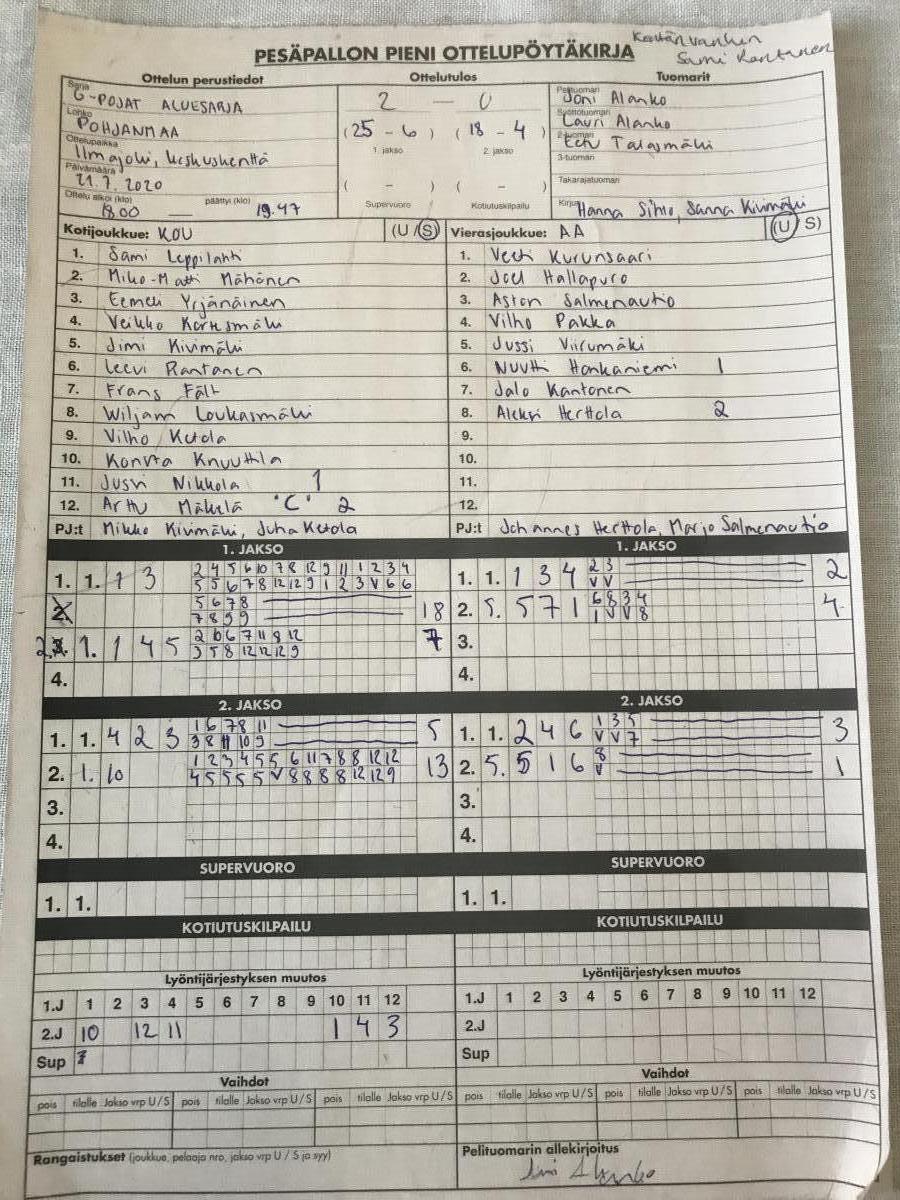 Sami Rantanen
PESÄPALLON PIENI OTTELUPÖYTÄKIRJA
Ottelun perustiedot Ottelutulos Tuomarit
Sarja G-POJAT ALUESARJA 2 — 0 Pelituomari Joni Alanko
Lohko POHJANMAA (25 - 6) (18 - 4) Syöttötuomari Lauri Alanko
Ottelupaikka Ilmajoki, keskuskenttä 1. jakso 2. jakso 2-tuomari Eetu Talasmäki
Päivämäärä 21.7.2020 3-tuomari
( - ) ( - ) Takarajatuomari
Ottelu alkoi (klo) 18.00 — päättyi (klo) 19.47 Supervuoro Kotiutuskilpailu Kirjuri Hanna Sihto, Sanna Kivimäki
Kotijoukkue: KOU (U/S) Vierasjoukkue: AA (U/S)
1. Sami Leppilahti 1. Veeti Kurunsaari
2. Miko-Matti Mähönen 2. Joel Hallapuro
3. Eemeli Yrjänäinen 3. Aston Salmenautio
4. Veikko Kortesmäki 4. Vilho Pakka
5. Jimi Kivimäki 5. Jussi Viirumäki
6. Leevi Rantanen 6. Nuutti Honkaniemi 1
7. Frans Fält 7. Jalo Kantonen
8. Wiljam Loukasmäki 8. Aleksi Herttola 2
9. Vilho Ketola 9.
10. Konsta Knuuttila 10.
11. Jussi Nikkola 1 11.
12. Arttu Mäkelä "C" 2 12.
PJ:t Mikko Kivimäki, Juha Ketola PJ:t Johannes Herttola, Marjo Salmenautio
1. JAKSO 1. JAKSO
1. 1. 1 3 2 4 5 6 10 7 8 12 9 11 1 2 3 4 1. 1. 1 3 4 2 3 2
5 5 6 7 8 12 12 9 1 2 3 V 6 6 V V
2. 5 6 7 8 18 2. 5. 5 7 1 6 8 3 4 4
7 8 9 9 1 V V 8
2. 1. 1 4 5 2 10 6 7 11 8 12 7 3.
3 5 8 12 12 12 9
4. 4.
2. JAKSO 2. JAKSO
1. 1. 4 2 3 1 6 7 8 11 5 1. 1. 2 4 6 1 3 5 3
3 8 11 10 9 V V 7
2. 1. 10 1 2 3 4 5 5 6 11 7 8 8 12 12 13 2. 5. 5 1 6 8 1
4 5 5 5 5 V 8 8 8 8 12 12 9 V
3. 3.
4. 4.
SUPERVUORO SUPERVUORO
1. 1. 1. 1.
KOTIUTUSKILPAILU KOTIUTUSKILPAILU
Lyöntijärjestyksen muutos Lyöntijärjestyksen muutos
1.J 1 2 3 4 5 6 7 8 9 10 11 12 1.J 1 2 3 4 5 6 7 8 9 10 11 12
2.J 10 12 11 1 4 3 2.J
Sup Sup
Vaihdot Vaihdot
pois tilalle Jakso vrp U/S pois tilalle Jakso vrp U/S pois tilalle Jakso vrp U/S pois tilalle Jakso vrp U/S pois tilalle Jakso vrp U/S pois tilalle Jakso vrp U/S
Rangaistukset (joukkue, pelaaja nro, jakso vrp U / S ja syy) Pelituomarin allekirjoitus
Joni Alanko